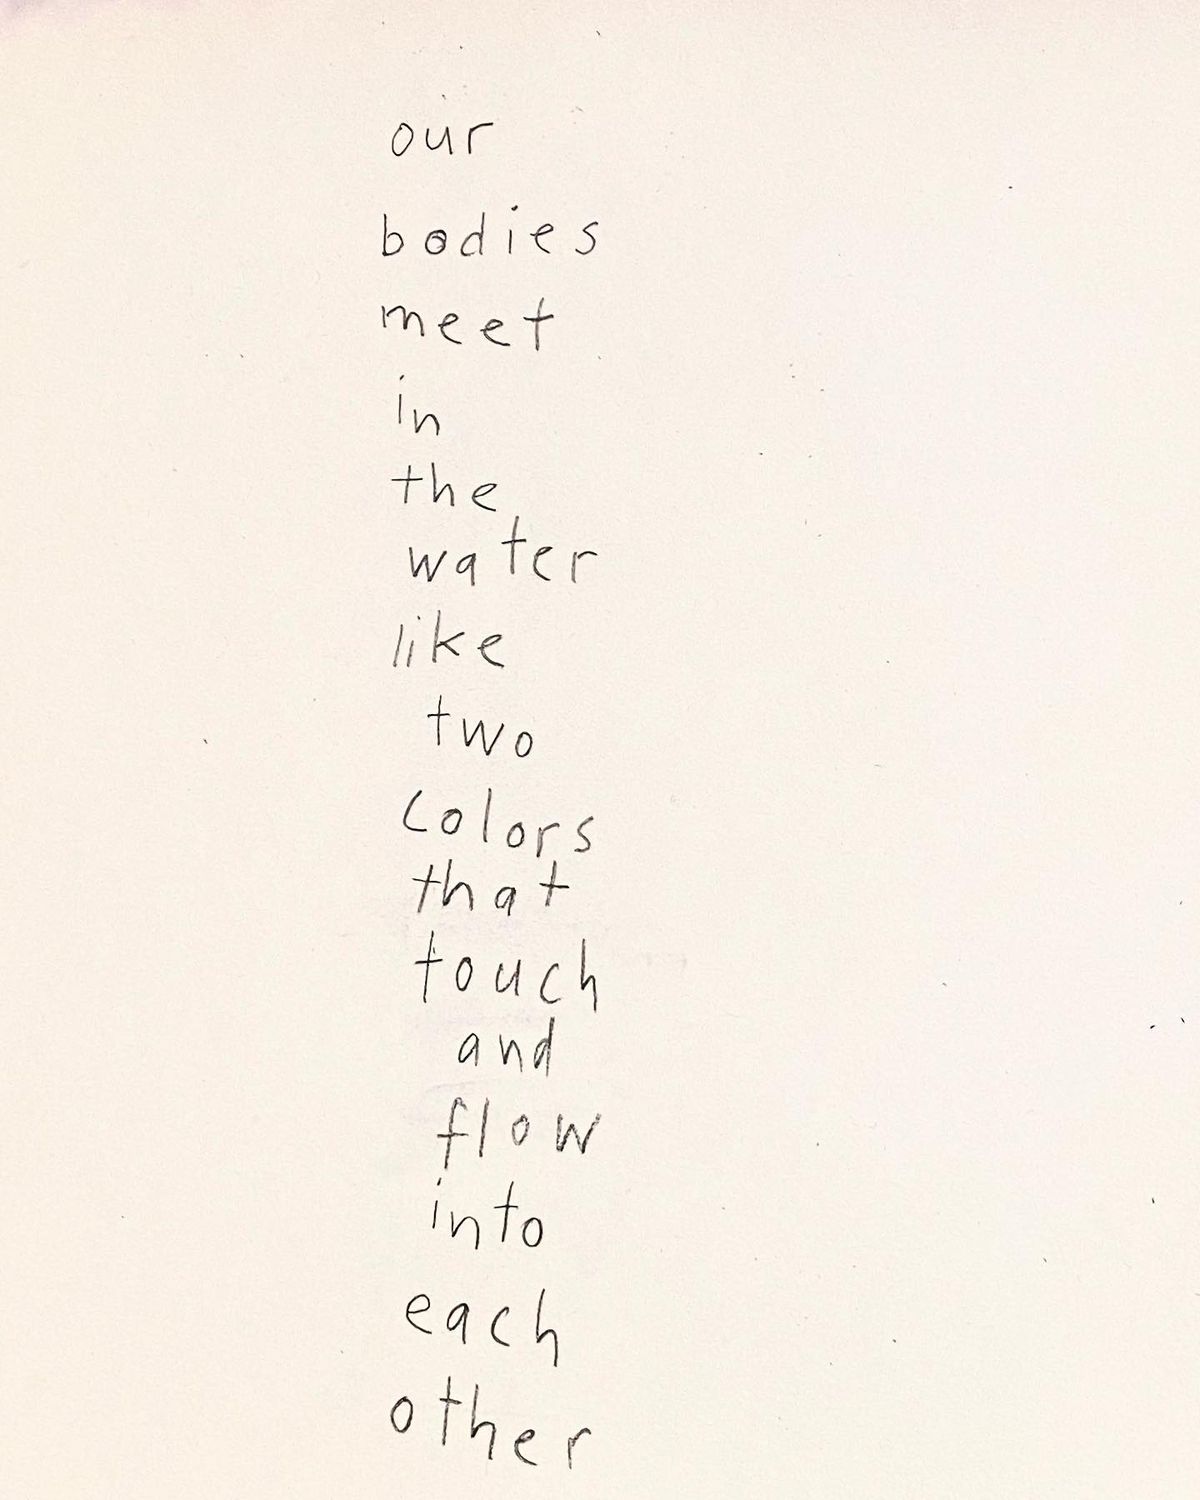 our
bodies
meet
in
the
water
like
two
colors
that
touch
and
flow
into
each
other